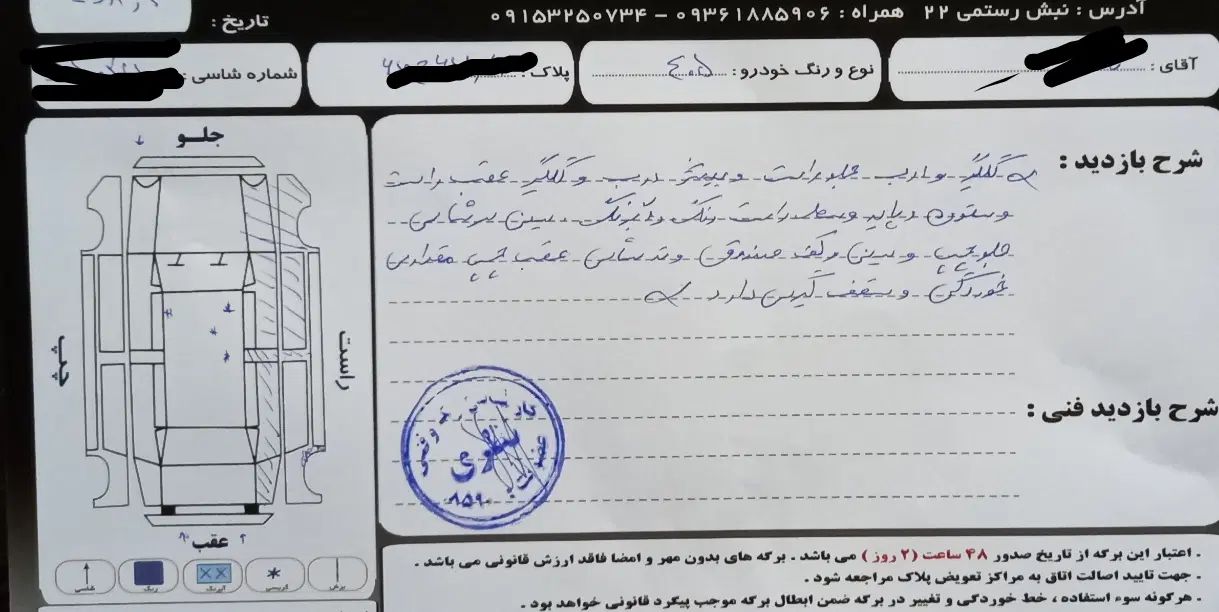 آدرس : نبش رستمی ۲۲ همراه : ۰۹۳۶۱۸۸۵۹۰۶ – ۰۹۱۵۳۲۵۰۷۳۴
تاریخ :
آقای :
نوع و رنگ خودرو : ۴۰۵
پلاک :
شماره شاسی :
جلــو
راست
چپ
عقب
برش
گریسی
آبرنگ
رنگ
شاسی
شرح بازدید :
گلگیر و درب جلو راست و پیشتر درب و گلگیر عقب راست
و ستون و پایه وسط راست رنگ و آبرنگ سینی سرشاسی
جلو چپ و سینی و کف صندوق و ته شاسی عقب چپ مقداری
خوردگی و سقف گریس دارد
شرح بازدید فنی :
۸۵۹۰
. اعتبار این برگه از تاریخ صدور ۴۸ ساعت (۲ روز) می باشد . برگه های بدون مهر و امضا فاقد ارزش قانونی می باشد .
. جهت تایید اصالت اتاق به مراکز تعویض پلاک مراجعه شود .
. هرگونه سوء استفاده ، خط خوردگی و تغییر در برگه ضمن ابطال برگه موجب پیگرد قانونی خواهد بود .